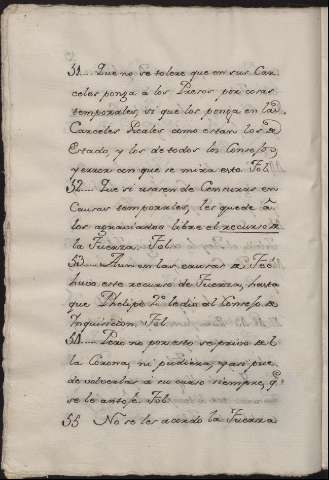 51.... Que no se tolere que en sus Car-
celes ponga à los Presos por cosas
temporales, si que los ponga en las
Carceles Reales como estan los de
Estado, y los de todos los Consejos,
y error con que se mira esto Fol.
52.... Que si usasen de Censuras en
Causas temporales, les quede à
los agraviados libre el recurso de
la Fuerza. Fol.
53.... Aun en las causas de Feè
huvo este recurso de Fuerza, hasta
que Phelipe 2º le dio al Consejo de
Inquisicion. Fol.
54.... Pero no por esto se privò de èl
la Corona, ni pudiera, y asi pue-
de volverlas a su curso siempre, qe
se le antoje. Fol.
55 No se les acordo la Fuerza